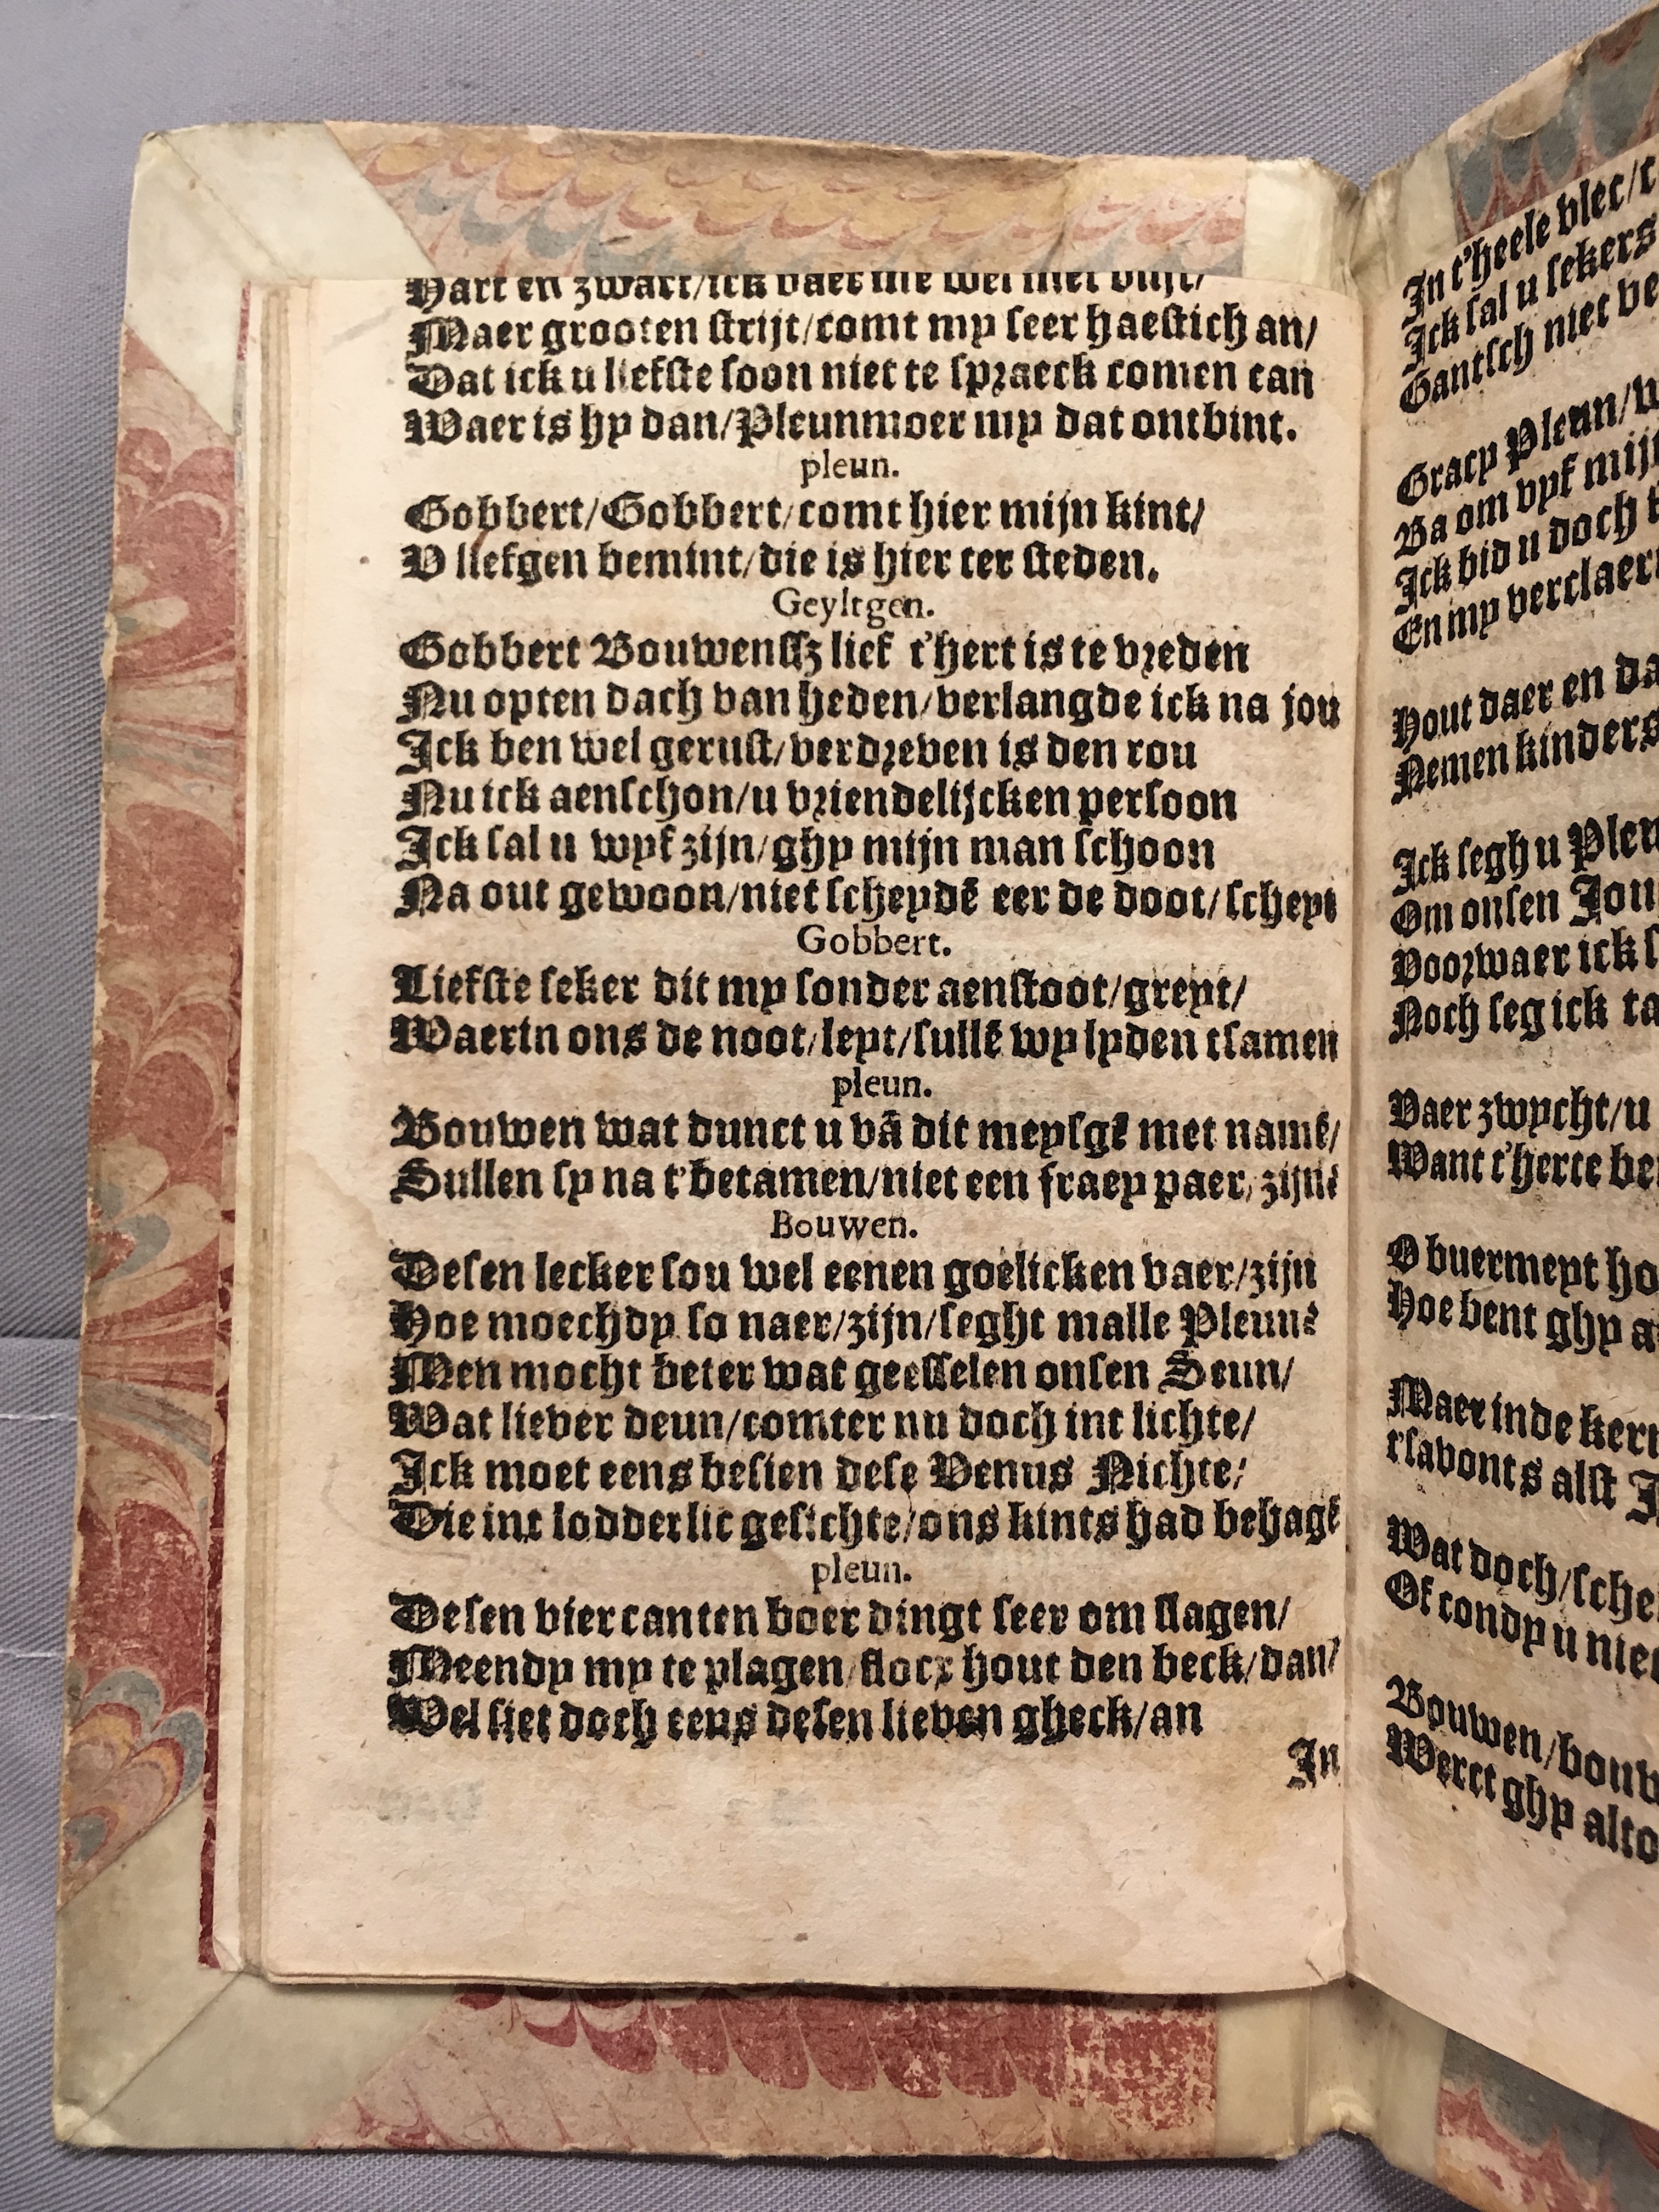 Hart en zwart/ick vaer me wel met vlijt/
Maer grooten strijt/comt my seer haestich an/
Dat ick u liefste soon niet te spraeck comen can
Waer is hy dan/Pleunmoer my dat ontbint.
pleun.
Gobbert/Gobbert/comt hier mijn kint/
V liefgen bemint/die is hier ter steden.
Geyltgen.
Gobbert Bouwenssz lief t'hert is te vreden
Nu opten dach van heden/verlangde ick na jou
Ick ben wel gerust/verdreven is den rou
Nu ick aenschou/u vriendelijcken persoon
Ick sal u wyf zijn/ghy mijn man schoon
Na out gewoon/niet scheydē eer de doot/scheyt
Gobbert.
Liefste seker dit my sonder aenstoot/greyt/
Waerin ons de noot/leyt/sullē wy lyden tsamen
pleun.
Bouwen wat dunct u vā dit meysgē met namē/
Sullen sy na t'betamen/niet een fraey paer/zijn?
Bouwen.
Desen lecker sou wel eenen goelicken vaer/zijn
Hoe moechdy so naer/zijn/seght malle Pleun?
Men mocht beter wat geesselen onsen Seun/
Wat liever deun/comter nu doch int lichte/
Ick moet eens besien dese Venus Nichte/
Die int lodderlic gesichte/ons kints had behagē
pleun.
Desen viercanten boer dingt seer om slagen/
Meendy my te plagen/flocx hout den beck/dan/
Wel siet doch eens desen lieven gheck/an
In
In t'heele vlec/
Ick sal u sekers
Gantsch niet
Gracy Pleun/
Ba om vyf
Ick bid u doch
En my
Hout daer en
Nemen kinders
Ick segh u
Om onsen
Voorwaer ick
Noch seg ick
Vaer zwycht/u
Want t'herte
O buermeyt
Hoe bent ghy
Maer inde
t'savonts alst
Wat doch/
Of condy u
Bouwen/
Werct ghy